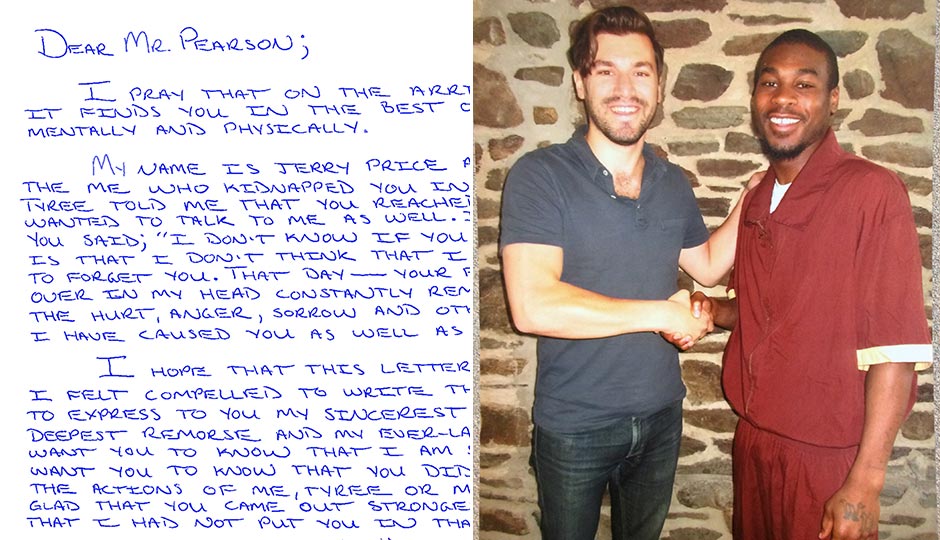 DEAR MR. PEARSON;
I PRAY THAT ON THE ARR
IT FINDS YOU IN THE BEST
MENTALLY AND PHYSICALLY.
MY NAME IS JERRY PRICE A
THE ME WHO KIDNAPPED YOU IN
TYREE TOLD ME THAT YOU REACHE
WANTED TO TALK TO ME AS WELL.
YOU SAID; "I DON'T KNOW IF YOU
IS THAT I DON'T THINK THAT I
TO FORGET YOU. THAT DAY — YOUR
OVER IN MY HEAD CONSTANTLY REM
THE HURT, ANGER, SORROW AND OTH
I HAVE CAUSED YOU AS WELL AS
I HOPE THAT THIS LETTER
I FELT COMPELLED TO WRITE TH
TO EXPRESS TO YOU MY SINCEREST
DEEPEST REMORSE AND MY EVER-LA
WANT YOU TO KNOW THAT I AM
WANT YOU TO KNOW THAT YOU DID
THE ACTIONS OF ME, TYREE OR M
GLAD THAT YOU CAME OUT STRONGE
THAT I HAD NOT PUT YOU IN THA